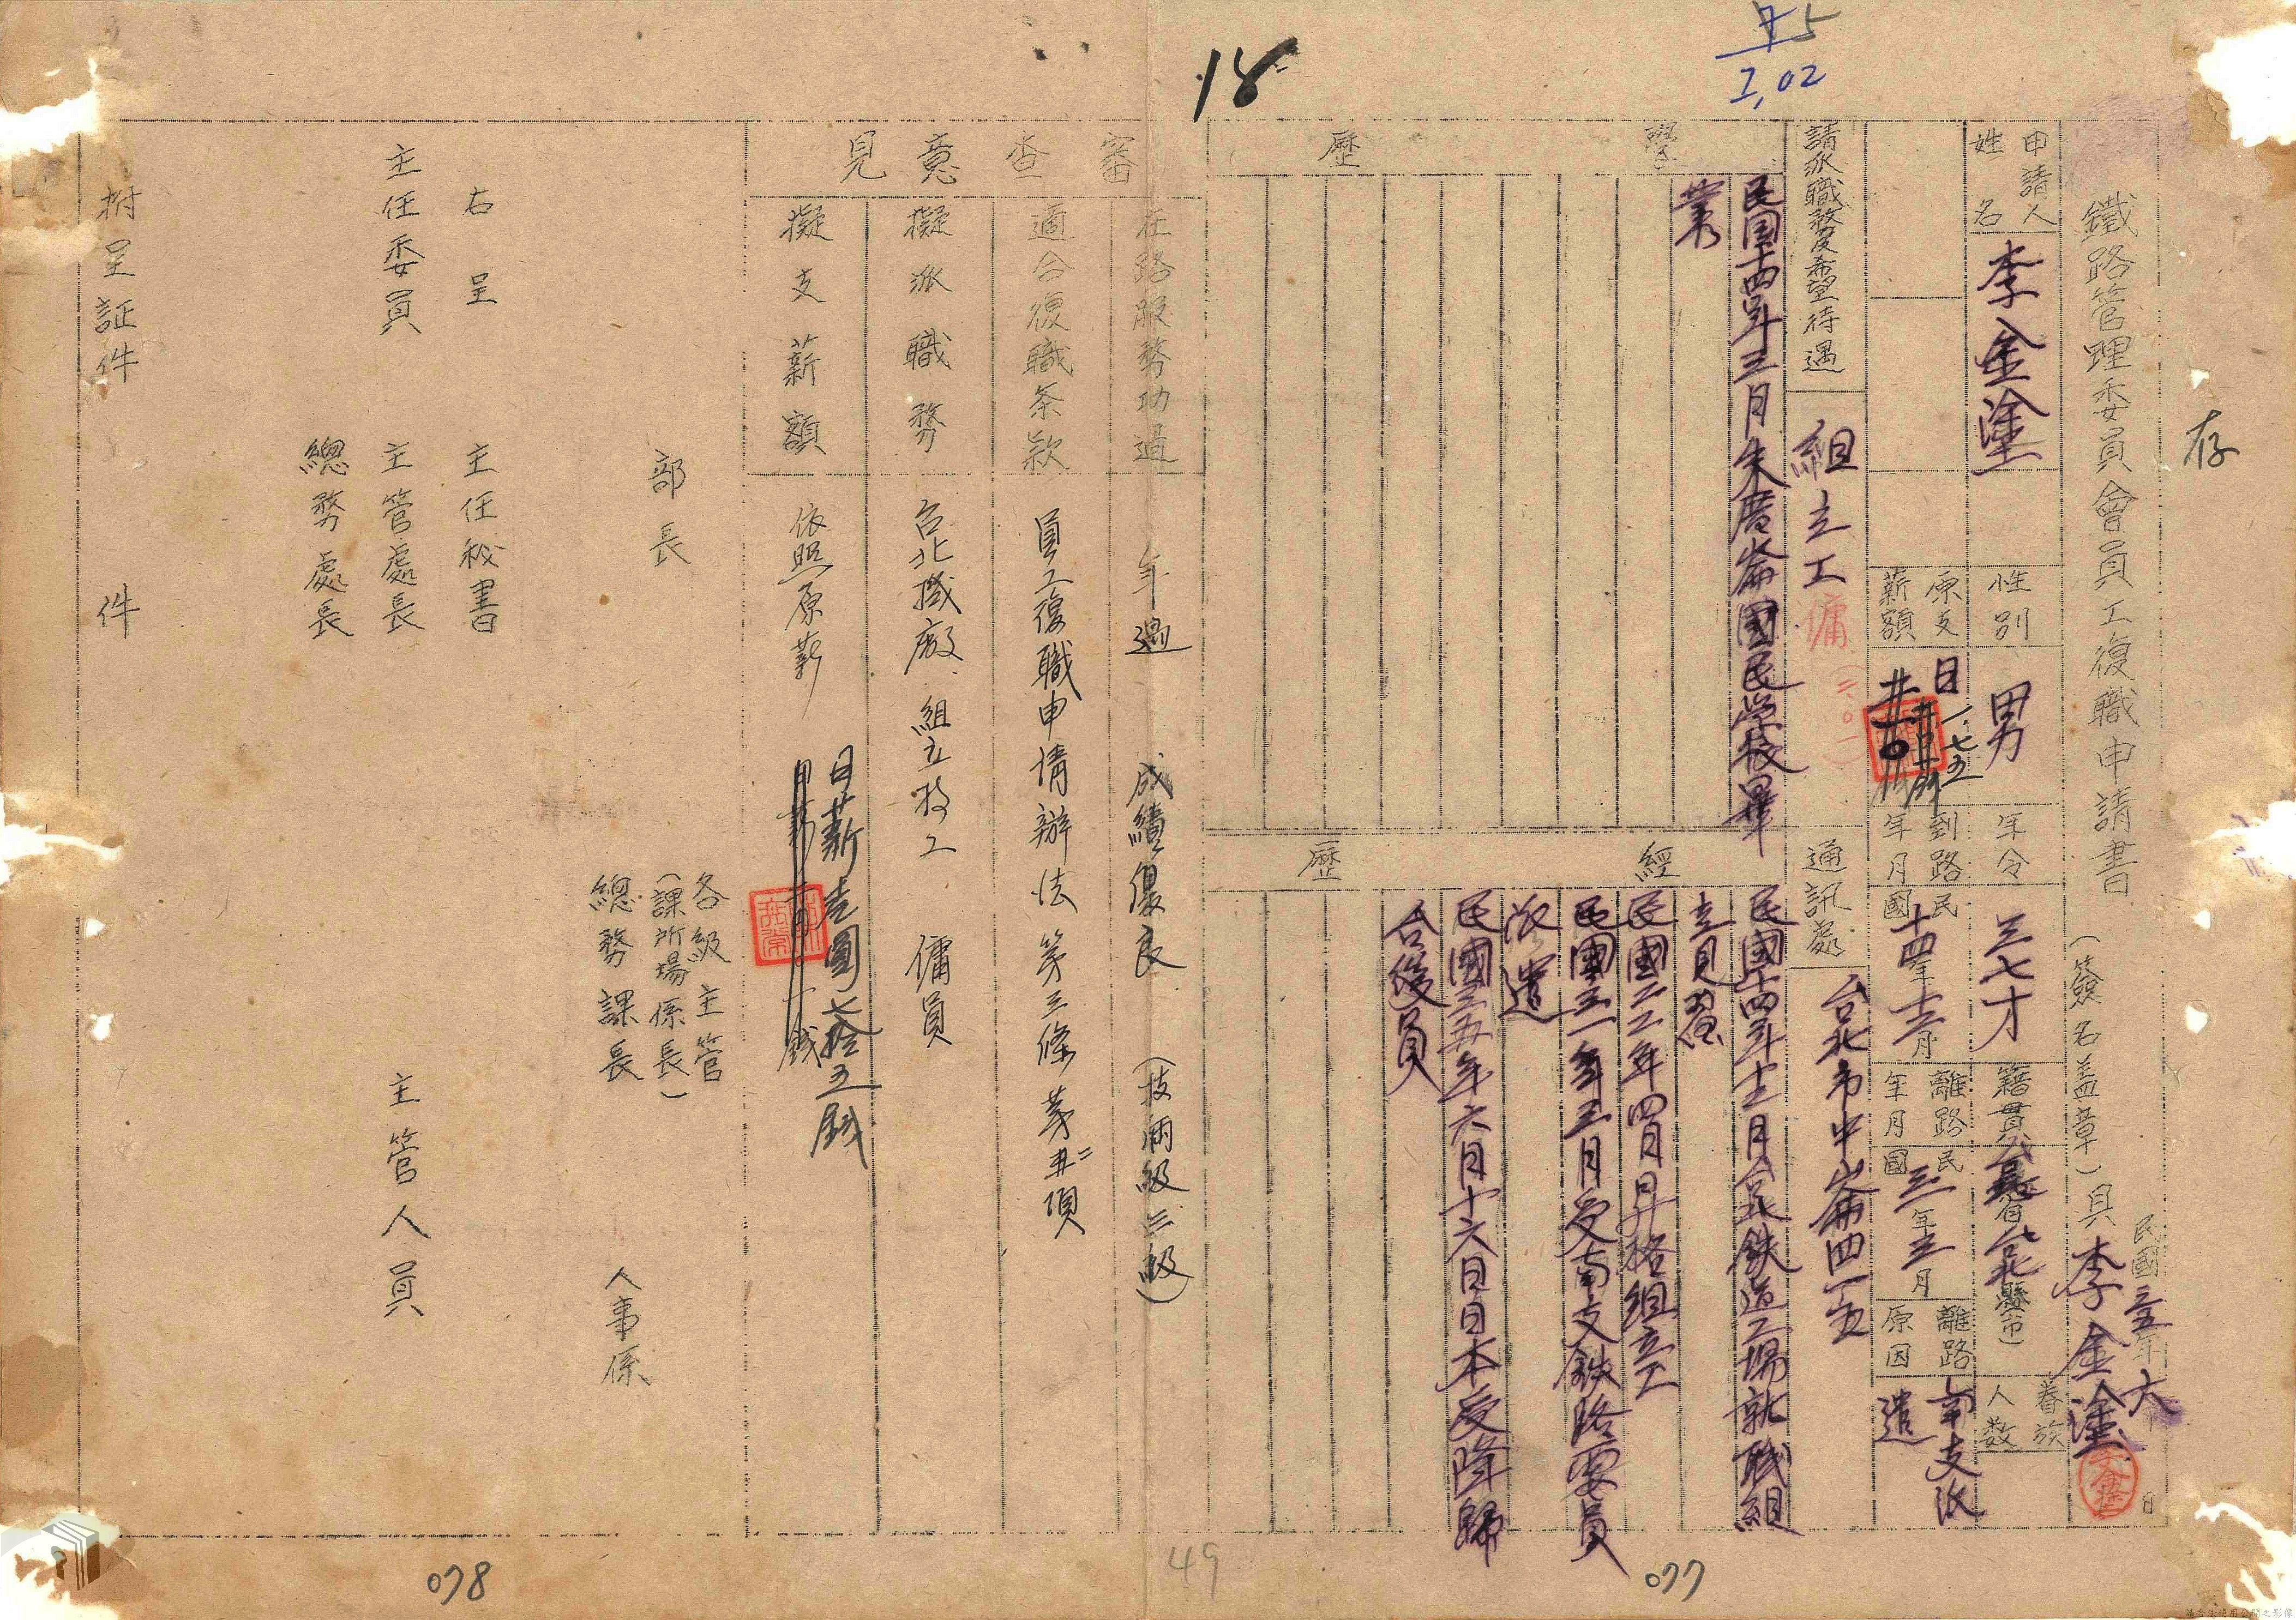 75
1,02
18
存
鐵路管理委員會員工復職申請書
(簽名盖章)具李金塗
民國三五年六 日
申請人
姓名
李金塗
性別
男
年令
三七才
籍貫
台北
眷族
人数
原支
薪額
日
一.七五
到路
年月
民國十四年十二月
離路
年月
民國三一年三月
離路
原因
南支派
遣
請派職務及希望待遇
組立工
傭
通訊處
台北市中崙四一五
學歷
民国十四年三月朱厝崙國民学校畢
業
經歷
民國十四年十二月台北鉄道工場就職組
立見習
民國二二年四月昇格組立工
民國三一年三月受南支鉄路要員
派遣
民國三五年六月十六日日本受降歸
台復員
審查意見
在路服務功過
年 過 成績優良 (技術級三級)
適合復職条款
員工復職申请辦法第三條第二項
擬派職務
台北機廠 組立技工 傭員
擬支薪額
依照原薪
日薪壹圓七拾五錢
部長
各級主管
(課所場係長)
總務課長
人事係
右呈
主任秘書
主任委員
主管處長
總務處長
主管人員
附呈証件 件
078
49
077